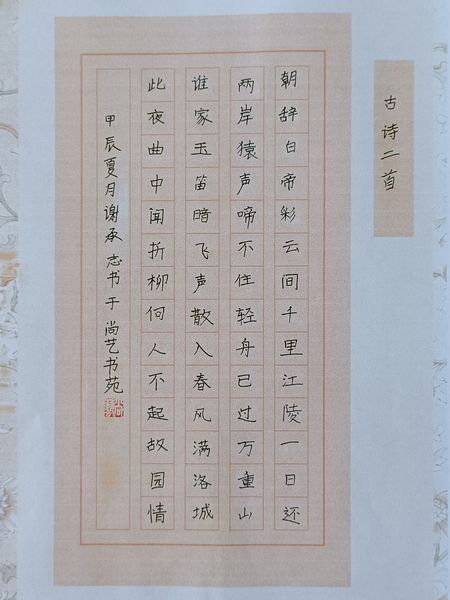 古诗二首
朝辞白帝彩云间千里江陵一日还
两岸猿声啼不住轻舟已过万重山
谁家玉笛暗飞声散入春风满洛城
此夜曲中闻折柳何人不起故园情
甲辰夏月谢承志书于尚艺书苑